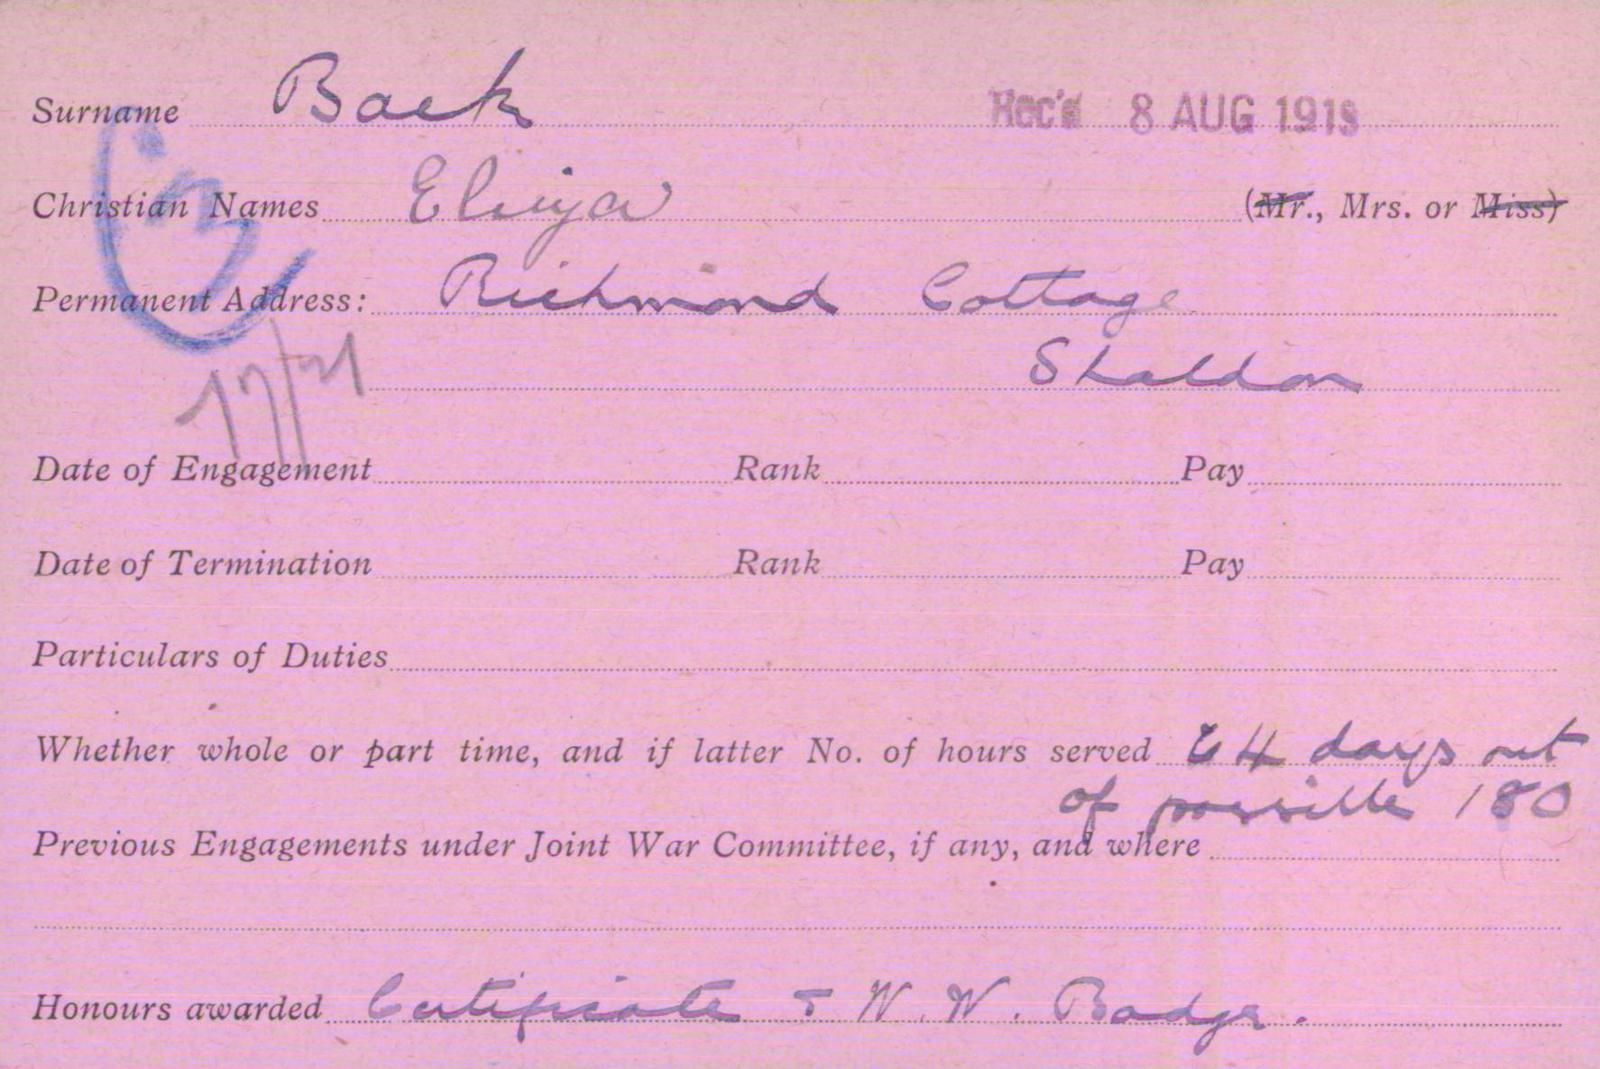 Surname Back Rec'd 8 AUG 1919
Christian Names Eliza (Mr., Mrs. or Miss)
Permanent Address: Richmond Cottage
Shaldon
17/21
Date of Engagement Rank Pay
Date of Termination Rank Pay
Particulars of Duties
Whether whole or part time, and if latter No. of hours served 64 days out
of possible 180
Previous Engagements under Joint War Committee, if any, and where
Honours awarded Certificate & W. W. Badge.